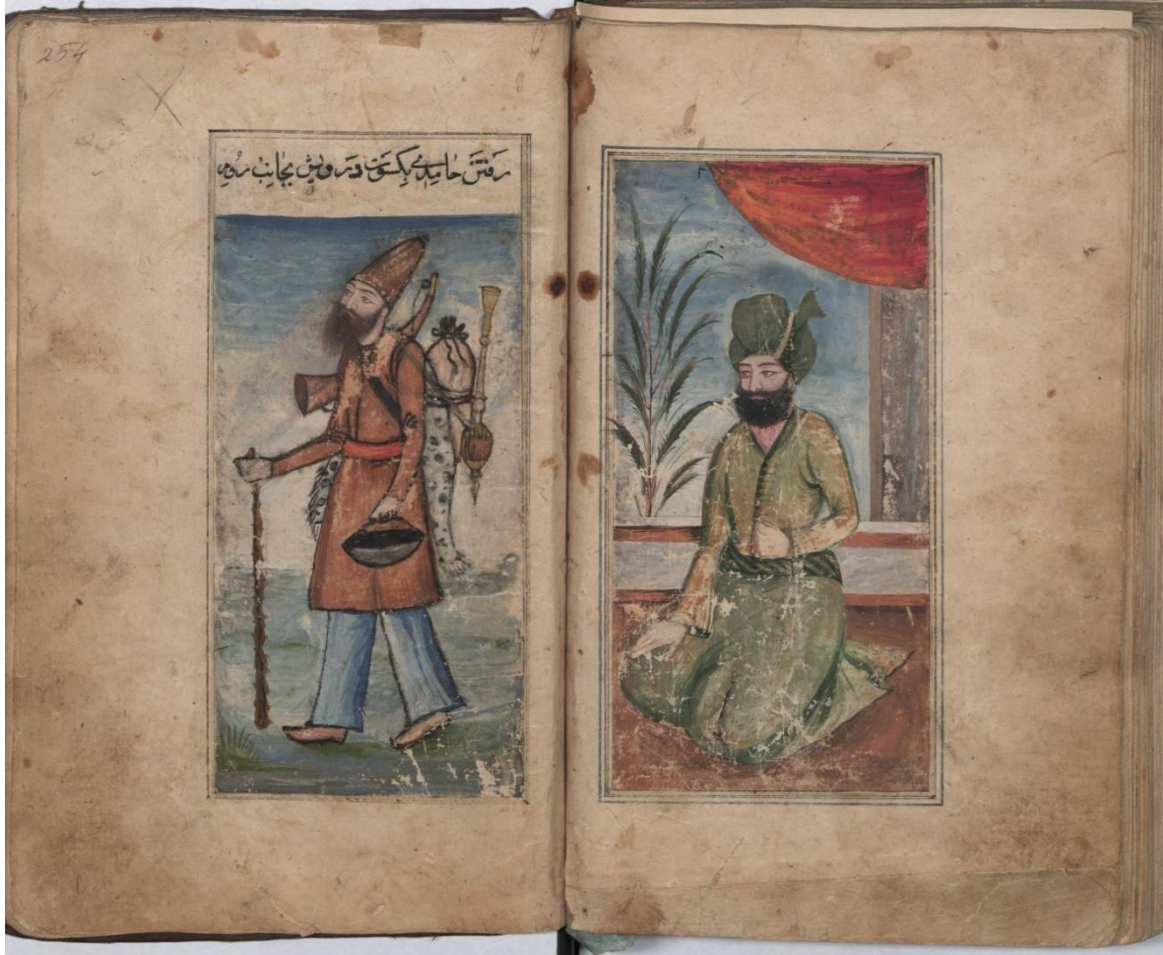 254
رفتن حامدی بکسوت درویش بجانب روم